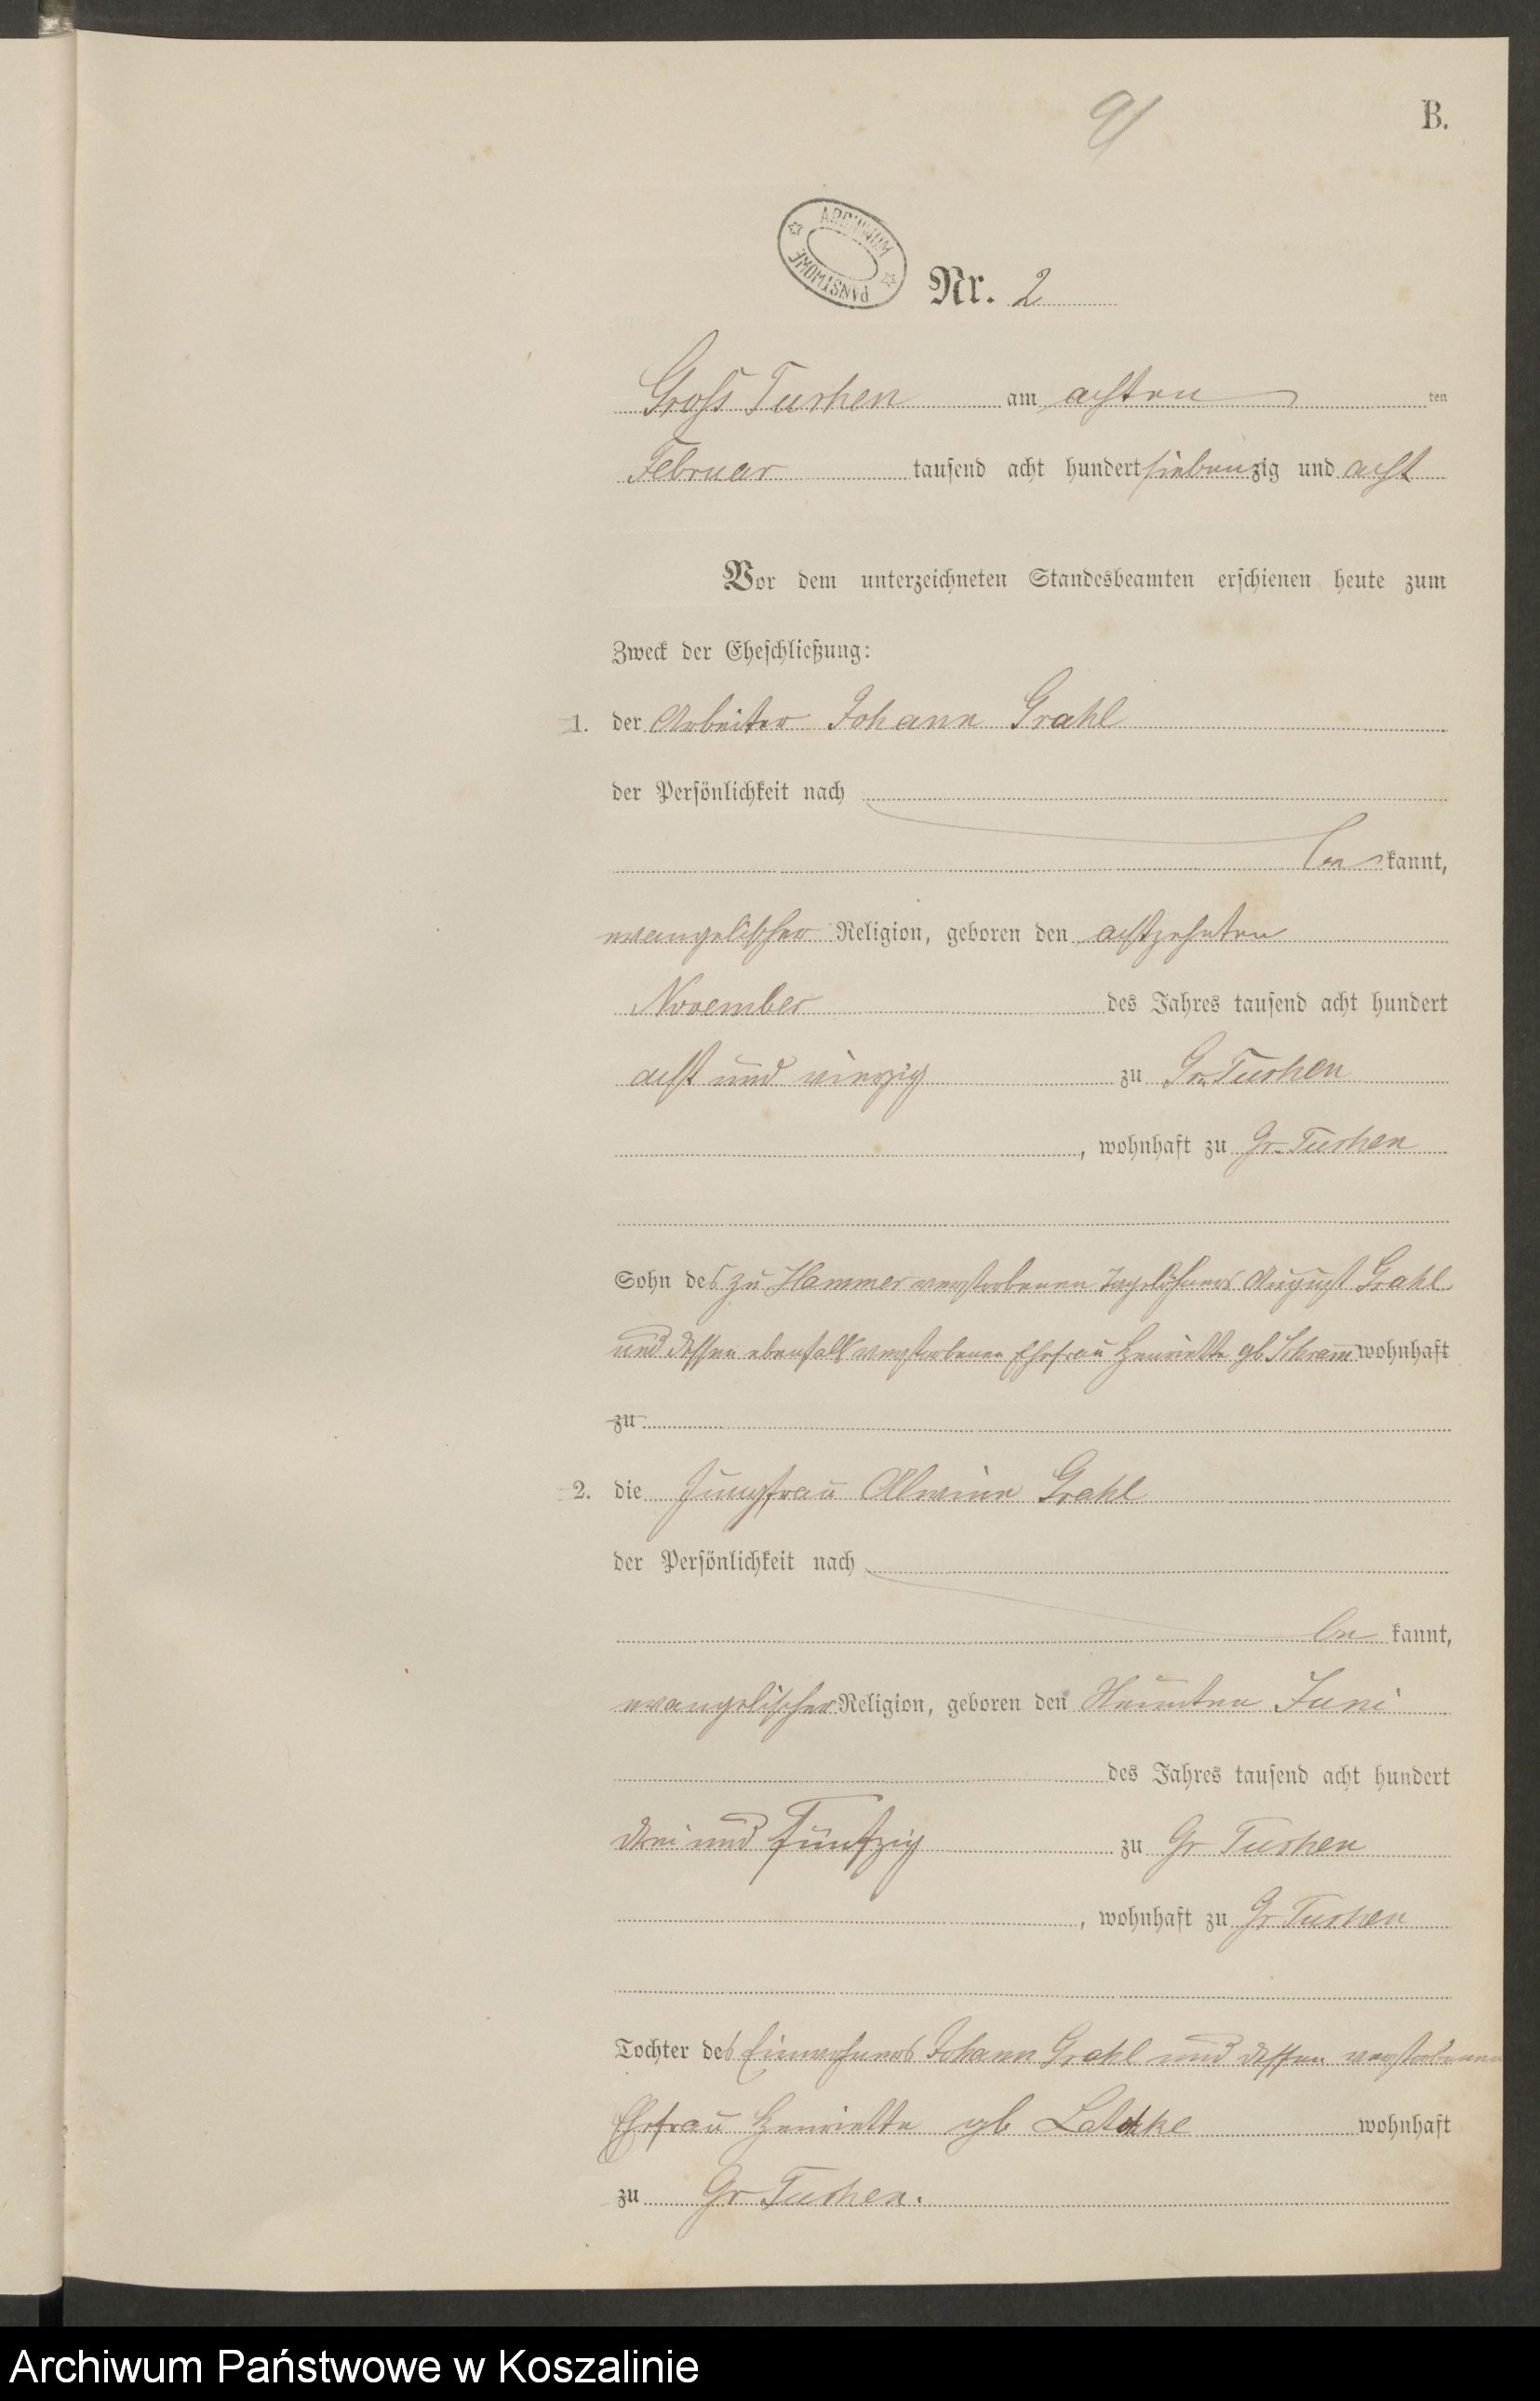 9/
B.
ARCHIWUM PAŃSTWOWE
Nr. 2
Gross Tuchen am achten ten
Februar tausend acht hundert siebenzig und acht
Vor dem unterzeichneten Standesbeamten erschienen heute zum
Zweck der Eheschließung:
1. der Arbeiter Johann Grahl
der Persönlichkeit nach
be kannt,
evangelischer Religion, geboren den achtzehnten
November des Jahres tausend acht hundert
acht und vierzig zu Gr. Tuchen
, wohnhaft zu Gr. Tuchen
Sohn des zu Hammer verstorbenen Tagelöhners August Grahl
und dessen ebenfalls verstorbenen Ehefrau Henriette gb Schramm wohnhaft
zu
2. die Jungfrau Alwine Grahl
der Persönlichkeit nach
be kannt,
evangelischer Religion, geboren den Neunten Juni
des Jahres tausend acht hundert
drei und fünfzig zu Gr Tuchen
, wohnhaft zu Gr Tuchen
Tochter des Einwohners Johann Grahl und dessen verstorbenen
Ehefrau Henriette gb wohnhaft
zu Gr Tuchen.
Archiwum Państwowe w Koszalinie